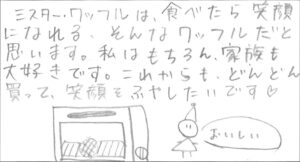 ミスター・ワッフルは、食べたら笑顔
になれる、そんなワッフルだと
思います。私はもちろん、家族も
大好きです。これからも、どんどん
買って、笑顔をふやしたいです♡
おいしい